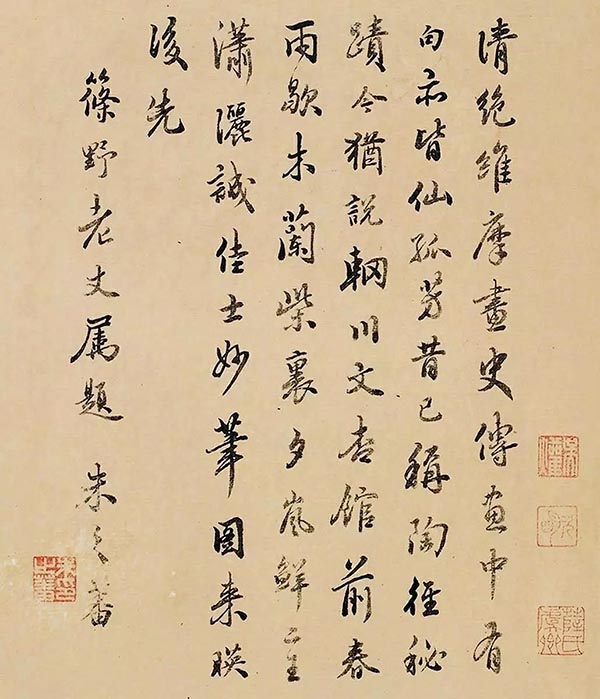 清絶維摩畫史傳畫中有
句亦皆仙孤芳昔已稱陶徑秘
蹟今猶説輞川文杏館前春
雨歇木蘭柴裏夕嵐鮮二
瀟灑誠佳士妙筆圖来映
後先
篠野老丈属題 朱之蕃